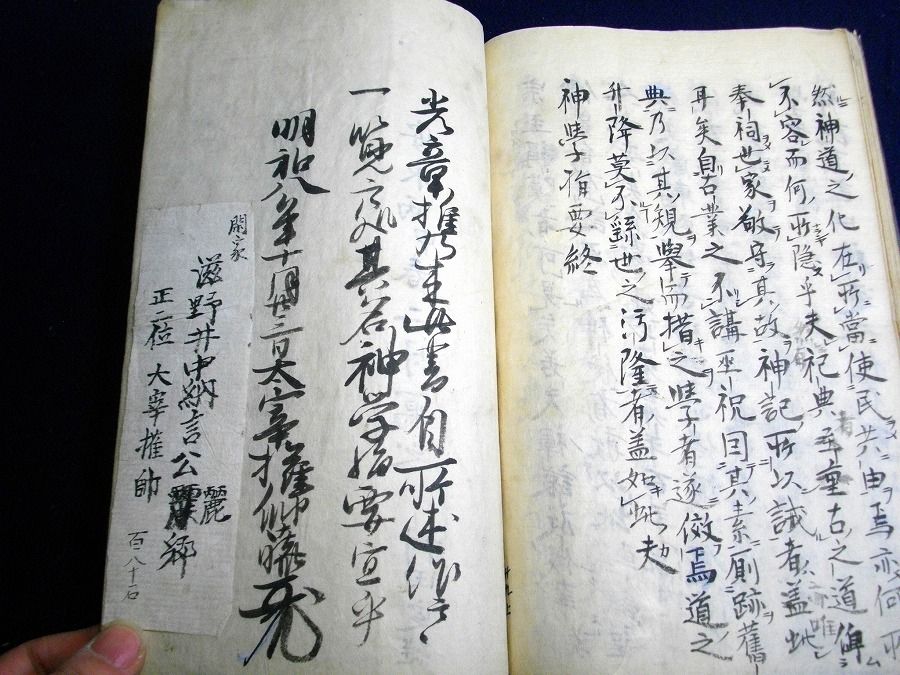 然神道之化在所當使民共由焉亦何所
不容而何所隠乎夫祀典乎重古之道俾
奉祠世家敬守其故神記所以誡者蓋唯
耳矣自古業之不講巫祝因其素厠跡舊
典乃以其規舉而措之學者遂傚焉道之
升降莫不繇世之汚隆者蓋如此夫
神學指要終
光章携来此書自所述作云々
一覧之処其名神学指要宜乎
明和八年十一月廿三日太宰権帥藤
閑家
滋野井中納言公麗郷
正二位 大宰権帥
百八十石